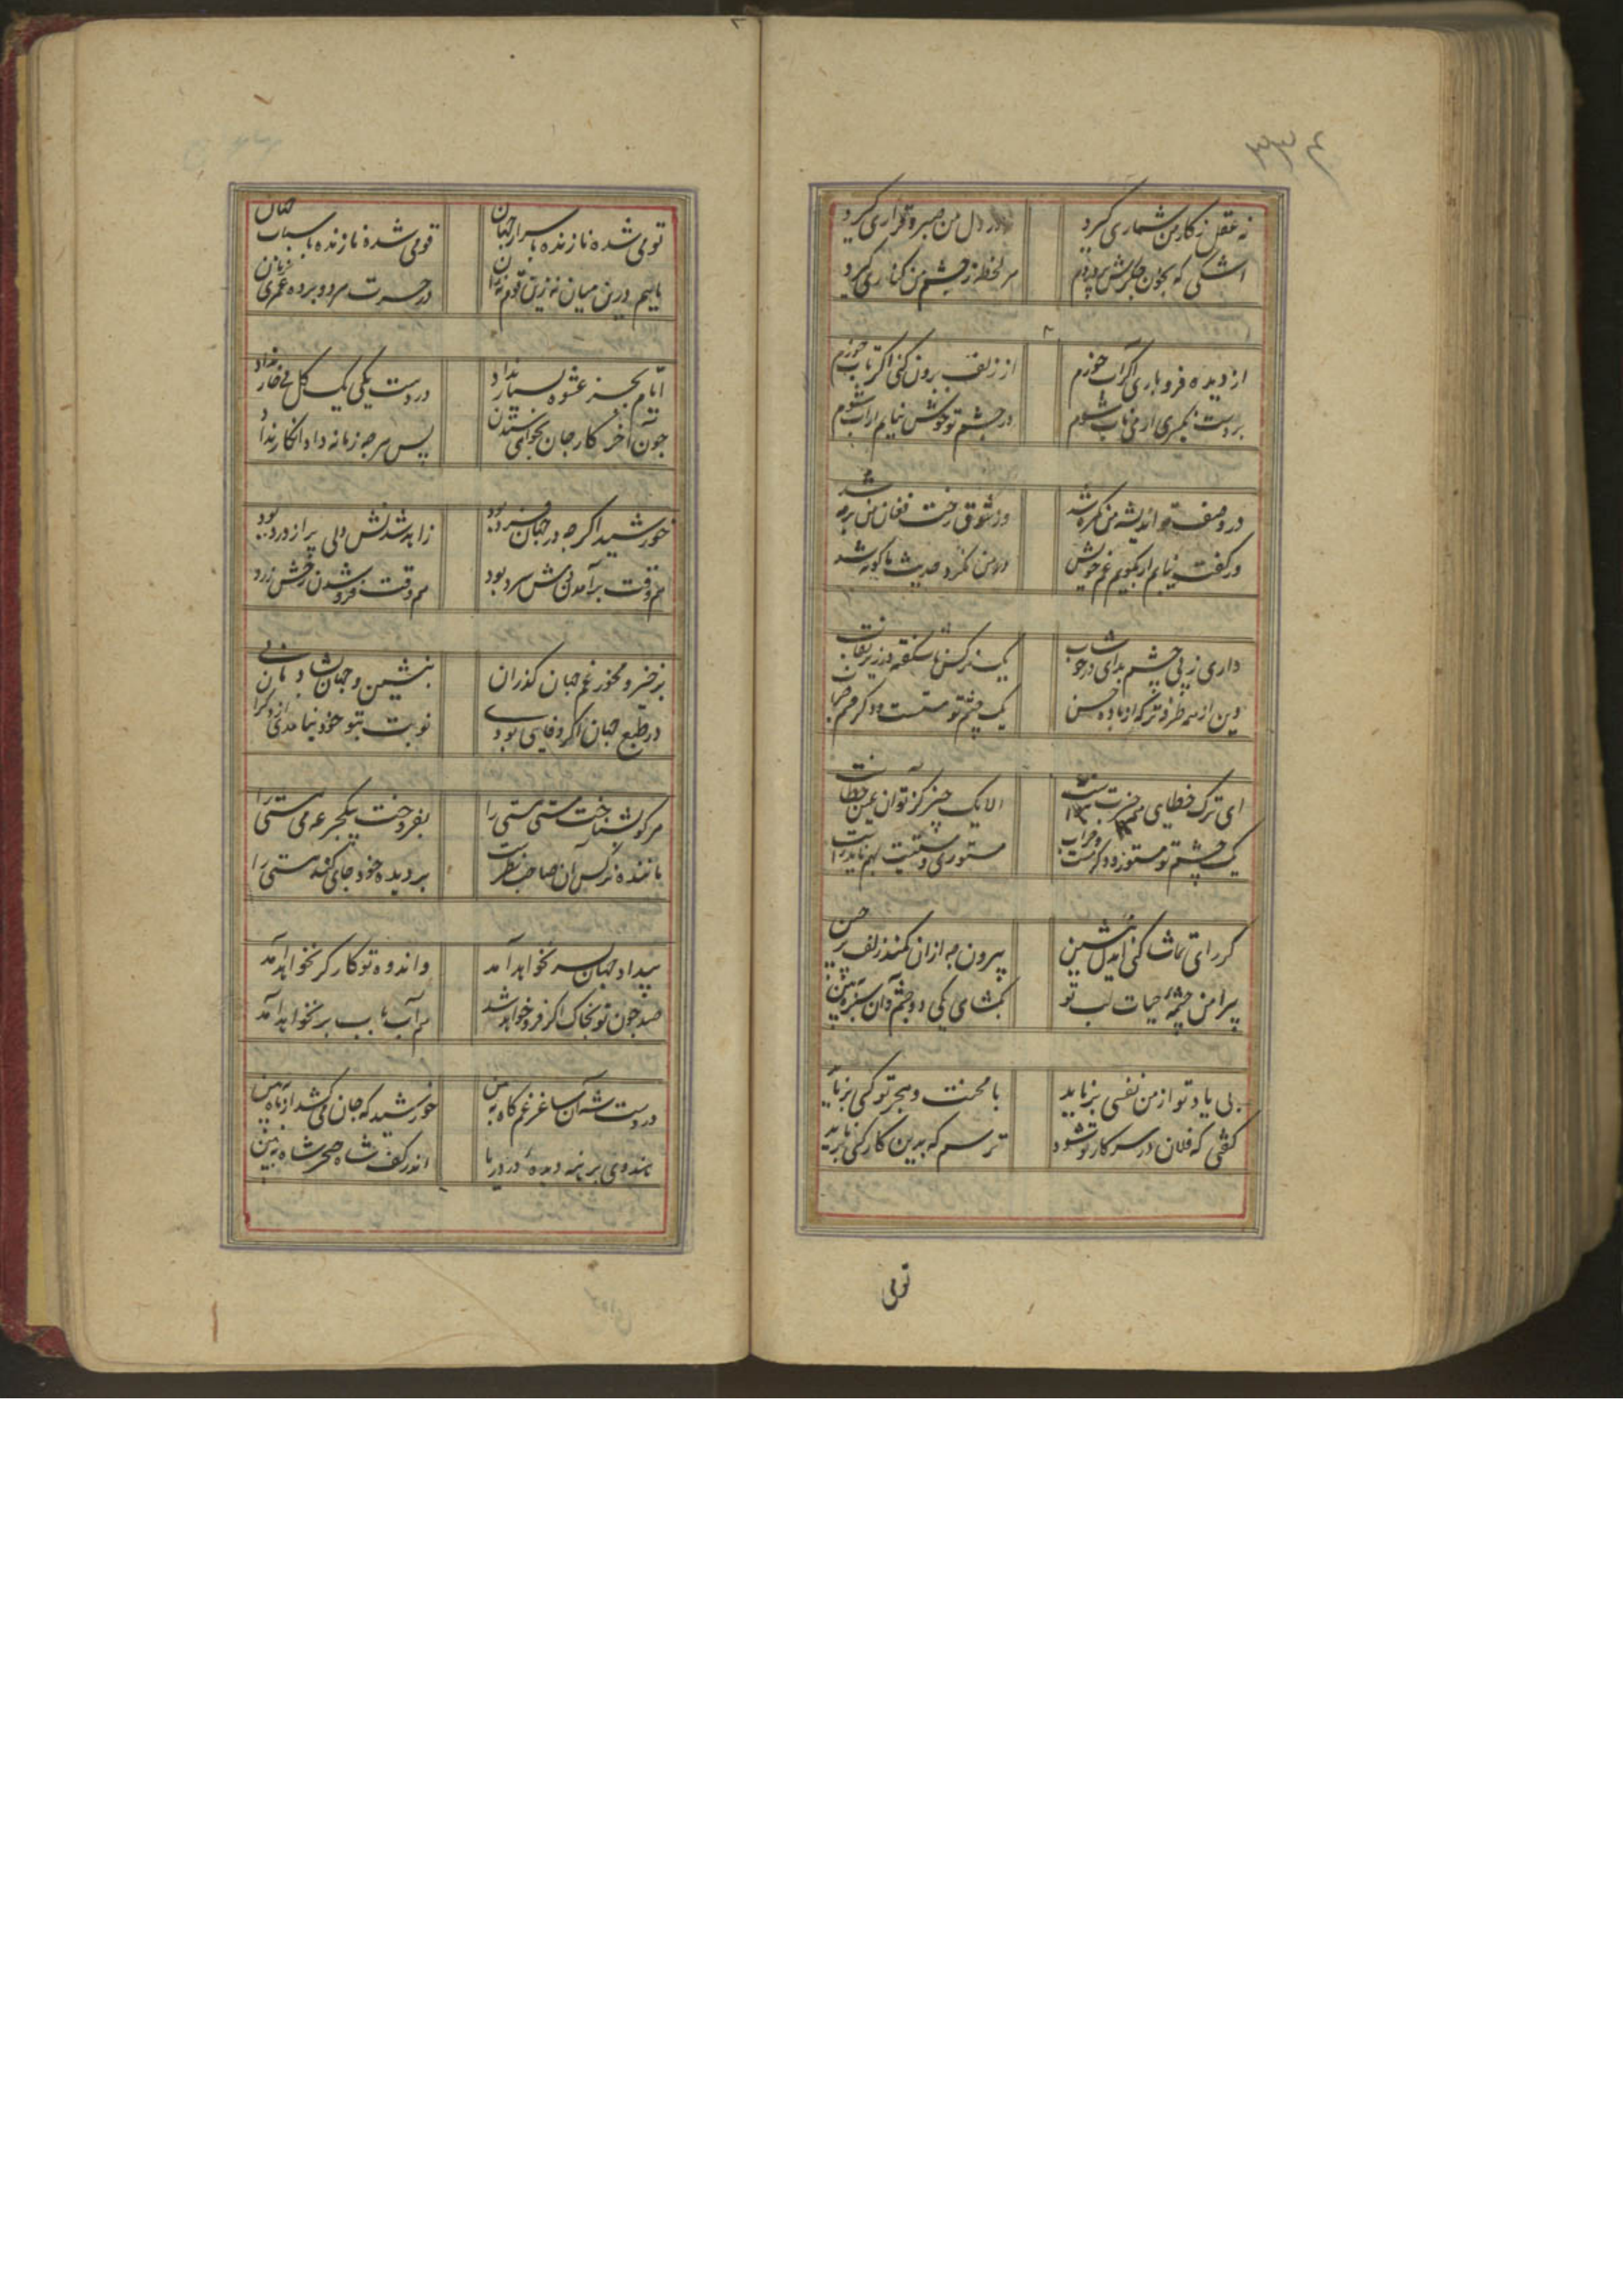 نه عقل ز کار من شماری گیرد
در دل من صبر و قراری گیرد
اشکی که بخون جگرش پروردم
هر لحظه ز چشم من کناری گیرد
از دیده فرو باری اگر آب خورم
از زلف برون کنی اگر تاب خورم
بر دست نگیری ار می ناب شوم
در چشم تو خوش نیایم ار آب شوم
در وصف تو اندیشه من گمره شد
وز شوق رخت فغان من بر مه شد
در گفت نیایم ار بگویم غم خویش
داری ز پی چشم بد ای در خوشاب
یک نرگس ناشکفته در زیر نقاب
وین از همه طرفه تر که از باده حسن
یک چشم تو مستست و دگر چشم بخواب
ای ترک خطایی همه چیزت
الا یک چیز کز تو آن عین خطاست
یک چشم تو مستور و دگر مست و خراب
مستوری و مستیت بهم ناید راست
گر رای تماشا کنی ای دل بنشین
بیرون به از آن کمند زلف پر چین
پیرامن چشمه حیات لب تو
بگشای یکی دو چشم و آن سبزه ببین
بی یاد تو از من نفسی برناید
با محنت و هجر تو کسی برناید
گفتی که فلان در سر کار تو شود
ترسم که بدین کار کسی برناید
تولی
قومی شده نازنده باسرار جهان
قومی شده نازنده باسباب جهان
ماییم درین میان نه زین قوم نه زان
در حسرت هر دو برده عمری
ایام بجز عشوه بسیار نداد
در دست یکی یک گل بی خار نداد
چون آخر کار جان بخواهی ستدن
پس هرچه زمانه داد انگار نداد
خورشید اگرچه در جهان فرد بود
زآمد شدنش دلی پر از درد بود
هم وقت برآمدنش سرد بود
هم وقت فروشدن رخش زرد
برخیز و مخور غم جهان گذران
بنشین و جهان بشادمانی
در طبع جهان اگر وفایی بودی
نوبت بتو خود نیامدی از دگران
هرکو بشناخت مستی هستی را
بفروخت بیکجرعه می هستی را
ماننده نرگس آن صاحب نظرست
بر دیده خود جای کند مستی را
بیداد جهان بسر نخواهد آمد
واندوه تو کارگر نخواهد آمد
صد چون تو بخاک اگر فرو خواهد شد
هم آب بآب بر نخواهد آمد
در دست شه آن ساغر غم کاه ببین
خورشید که جان می کشد از ماه ببین
اندر کف شاه بحر شاه ببین